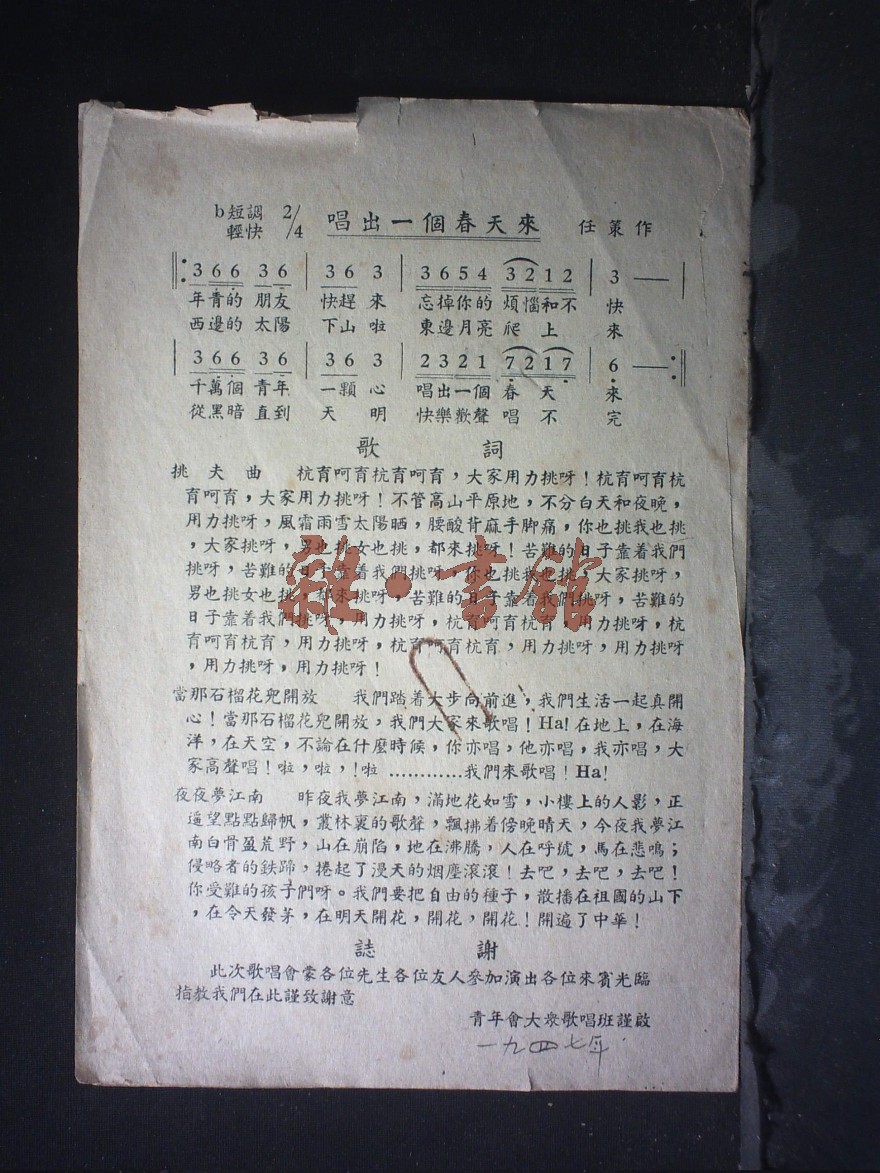 b短調 2/4 唱出一個春天來 任策作
輕快
3 6 6 3 6 | 3 6 3 | 3 6 5 4 3 2 1 2 | 3 —
年青的 朋友 快趕 來 忘掉你的 煩惱和不 快
西邊的 太陽 下山 啦 東邊月亮 爬 上 來
3 6 6 3 6 | 3 6 3 | 2 3 2 1 7 2 1 7 | 6 —
千萬個 青年 一顆 心 唱出一個 春 天 來
從黑暗 直到 天 明 快樂歡聲 唱 不 完
歌 詞
挑夫曲 杭育呵育杭育呵育,大家用力挑呀!杭育呵育杭
育呵育,大家用力挑呀!不管高山平原地,不分白天和夜晚,
用力挑呀,風霜雨雪太陽晒,腰酸背麻手脚痛,你也挑我也挑
,大家挑呀,男也挑女也挑,都來挑呀!苦難的日子靠着我們
挑呀,苦難的日子靠着我們挑呀,你也挑我也挑,大家挑呀,
男也挑女也挑,都來挑呀,苦難的日子靠着我們挑呀,苦難的
日子靠着我們挑呀,用力挑呀,杭育呵育杭育,用力挑呀,杭
育呵育杭育,用力挑呀,杭育呵育杭育,用力挑呀,用力挑呀
,用力挑呀,用力挑呀!
當那石榴花兒開放 我們踏着大步向前進,我們生活一起真開
心!當那石榴花兒開放,我們大家來歌唱!Ha!在地上,在海
洋,在天空,不論在什麼時候,你亦唱,他亦唱,我亦唱,大
家高聲唱!啦,啦,!啦 …………我們來歌唱!Ha!
夜夜夢江南 昨夜我夢江南,滿地花如雪,小樓上的人影,正
遥望點點歸帆,叢林裏的歌聲,飄拂着傍晚晴天,今夜我夢江
南白骨盈荒野,山在崩陷,地在沸騰,人在呼號,馬在悲鳴;
侵略者的鉄蹄,捲起了漫天的烟塵滾滾!去吧,去吧,去吧!
你受難的孩子們呀。我們要把自由的種子,散播在祖國的山下
,在令天發茅,在明天開花,開花,開花!開遍了中華!
誌 謝
此次歌唱會蒙各位先生各位友人參加演出各位來賓光臨
指教我們在此謹致謝意
青年會大衆歌唱班謹啟
一九四七年
雜·書館